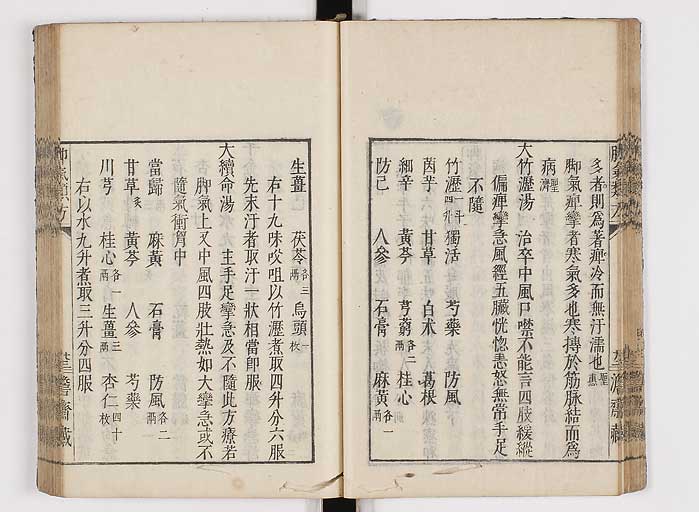 多者則為著痺冷而無汗濡也 聖惠
脚氣痺攣者寒氣多也寒摶於筋脉結而為
病 聖濟
大竹瀝湯 治卒中風口噤不能言四肢緩縱
偏痺攣急風經五臟恍惚恚怒無常手足
不隨
竹瀝 一斗四升 獨活 芍藥 防風
茵芋 甘草 白术 葛根
細辛 黃芩 芎藭 各二兩 桂心
防己 人參 石膏 麻黃 各一兩
生薑 茯苓 各三兩 烏頭 一枚
右十九味㕮咀以竹瀝煮取四升分六服
先未汗者取汗一狀相當即服
大續命湯 主手足攣急及不隨此方療若
脚氣上又中風四肢壯熱如大攣急或不
隨氣衝胷中
當歸 麻黃 石膏 防風 各二兩
甘草 炙 黃芩 人參 芍藥
川芎 桂心 各一兩 生薑 三兩 杏仁 四十枚
右以水九升煮取三升分四服